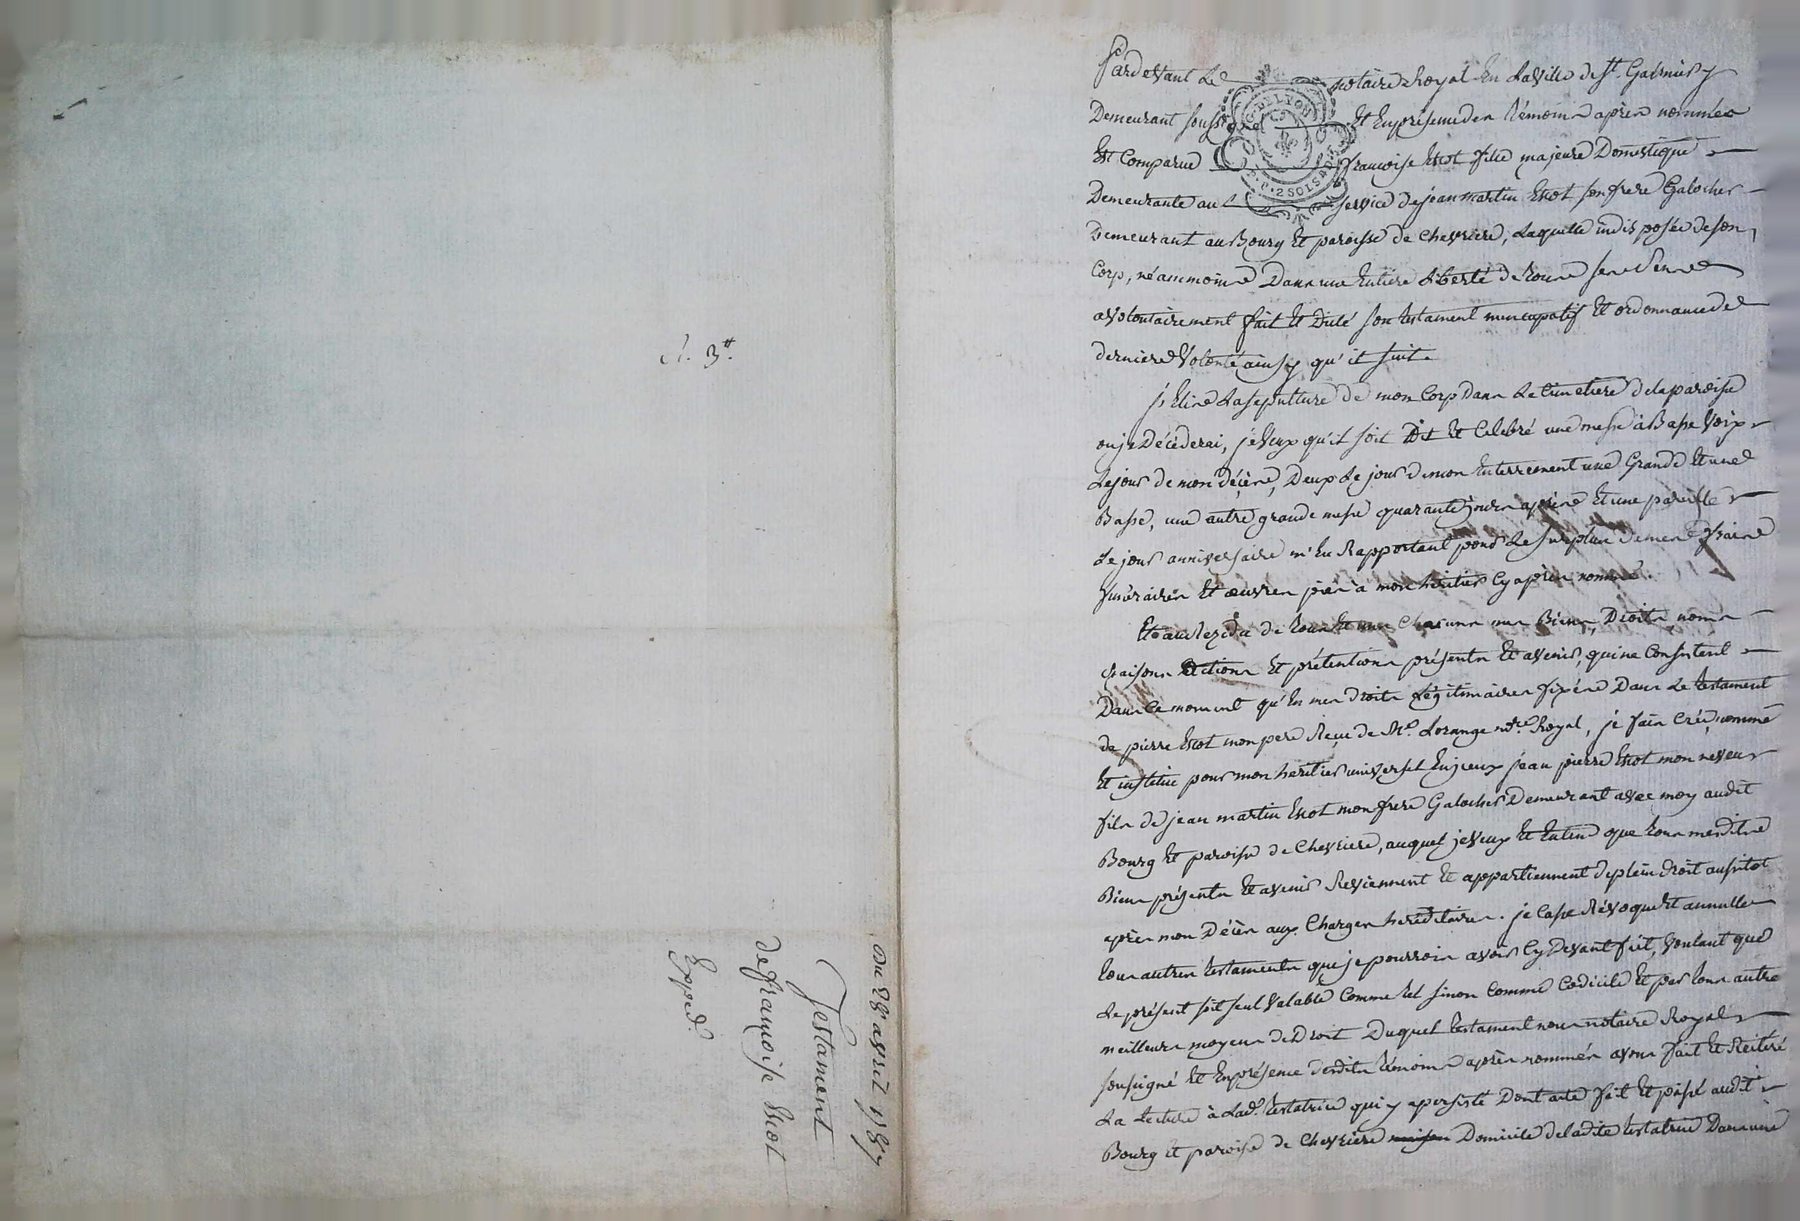 R. 3ᵗᵗ.
Du 28 avril 1787
Testament
de françoise Escot
Exped.
Pardevant Le notaire Royal En La Ville de St. Galmier y
Demeurant soussigné Et En présence des témoins après nommés
Est Comparue françoise Escot fille majeure Domestique
Demeurante au service de jean martin Escot son frere Galocher
Demeurant au Bourg Et paroisse de Chevriere, Laquelle indisposée de son
Corp, néanmoins Dans une Entiere Liberté de tous ses sens
a volontairement fait Et Dicté son testament nuncupatif Et ordonnance de
derniere Volonté ainsy qu'il suit.
j'Elis La sepulture de mon Corp dans Le Cimetiere de la paroisse
ou je Décéderai, je Veux qu'il soit Dit Et Celebré une messe à Basse Voix
Le jour de mon décès, Deux Le jour de mon Enterrement une Grande Et une
Basse, une autre grande messe quarante jours après Et une pareille
Le jour anniversaire m'En Rapportant pour Le surplus de mes frais
funéraires Et œuvres pies à mon héritier Cy après nommé.
Et au Rezidu de tous Et uns Chacuns mes Biens, Droits, noms
Raisons Actions Et prétentions présents Et avenir, qui ne Consistent
Dans Ce moment qu'En mes droits Légitimaires fixés Dans Le testament
de pierre Escot mon pere Reçu de Me. Lorange ntre. Royal, je fais Créé, nomme
Et institue pour mon heritier universel Enjeux jean pierre Escot mon neveu
fils de jean martin Escot mon frere Galocher Demeurant avec moy audit
Bourg Et paroisse de Chevriere, auquel je Veux Et Entend que tous mesdits
Biens présents Et avenir Reviennent Et appartiennent de plein droit aussitot
après mon Décès aux Charges héréditaires. je Casse Révoque Et annulle
tous autres testaments que je pourrois avoir Cy Devant fait, Voulant que
Le présent soit seul Valable Comme tel sinon Comme Codicile Et par tous autre
meilleurs moyens de Droit Duquel testament nous notaire Royal
soussigné Et En présence desdits témoins après nommés avons fait Et Reiteré
La Lecture à Lad. testatrice qui y a persisté Dont acte fait Et passé audit
Bourg Et paroisse de Chevriere Domicile de ladite testatrice Dans une